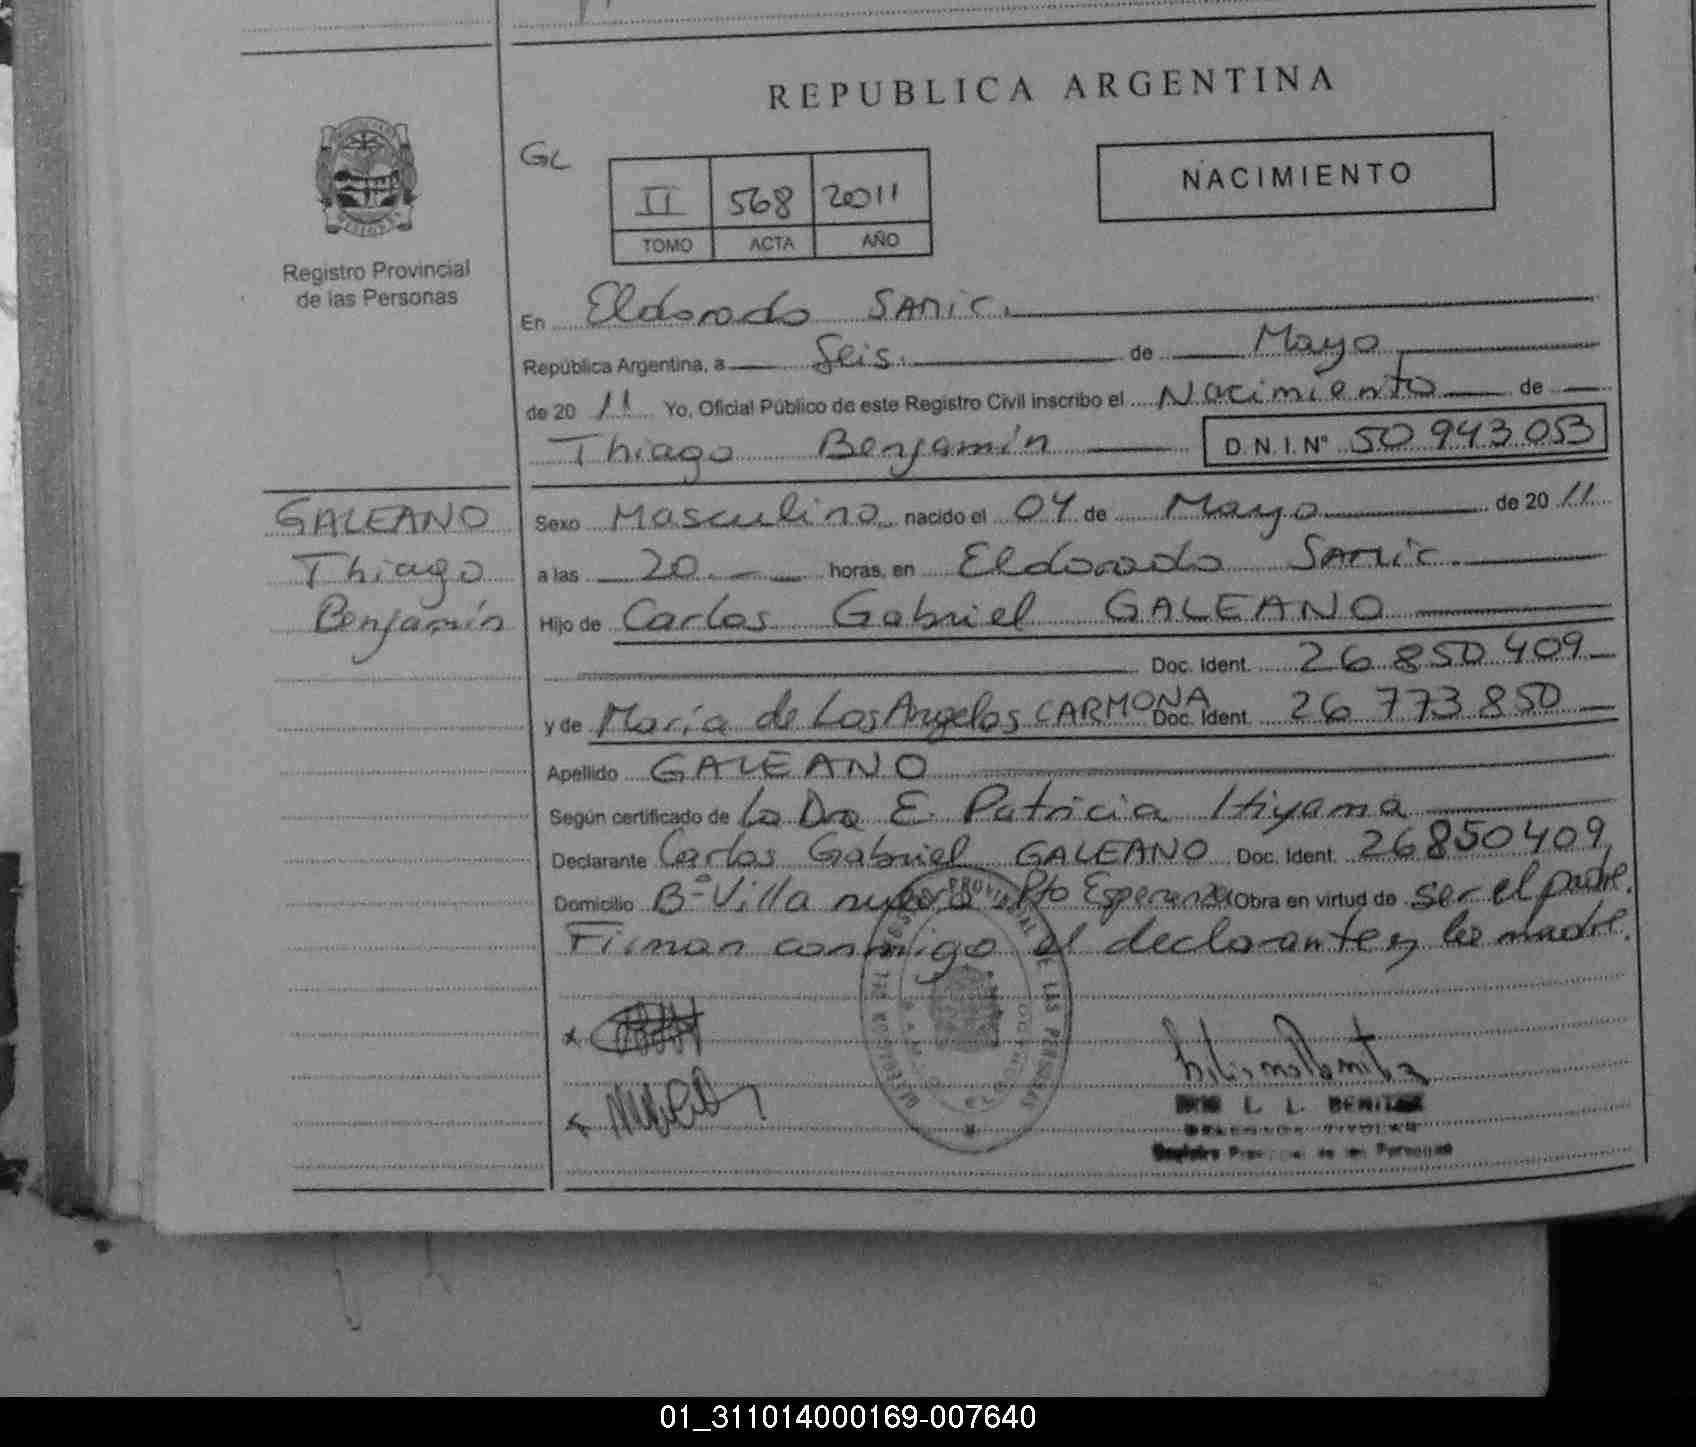 REPUBLICA ARGENTINA
GL
II 568 2011
TOMO ACTA AÑO
NACIMIENTO
Registro Provincial
de las Personas
En Eldorado SAMIC.
República Argentina, a Seis. de Mayo
de 20 11 Yo, Oficial Público de este Registro Civil inscribo el Nacimiento de
Thiago Benjamín D.N.I.Nº 50 943 053
GALEANO
Thiago
Benjamín
Sexo Masculino nacido el 04 de Mayo de 20 11
a las 20 horas, en Eldorado SAMIC.
Hijo de Carlos Gabriel GALEANO
Doc. Ident. 26 850 409
y de María de Los Angeles CARMONA Doc. Ident. 26 773 850
Apellido GALEANO
Según certificado de La Dra E. Patricia Hiyama
Declarante Carlos Gabriel GALEANO Doc. Ident. 26850409
Domicilio Bº Villa nueva Pto Esperanza Obra en virtud de ser el padre.
Firman conmigo el declarante y la madre.
REGISTRO PROVINCIAL DE LAS PERSONAS
L. L. BENITEZ
Registro Provincial de las Personas
01_311014000169-007640